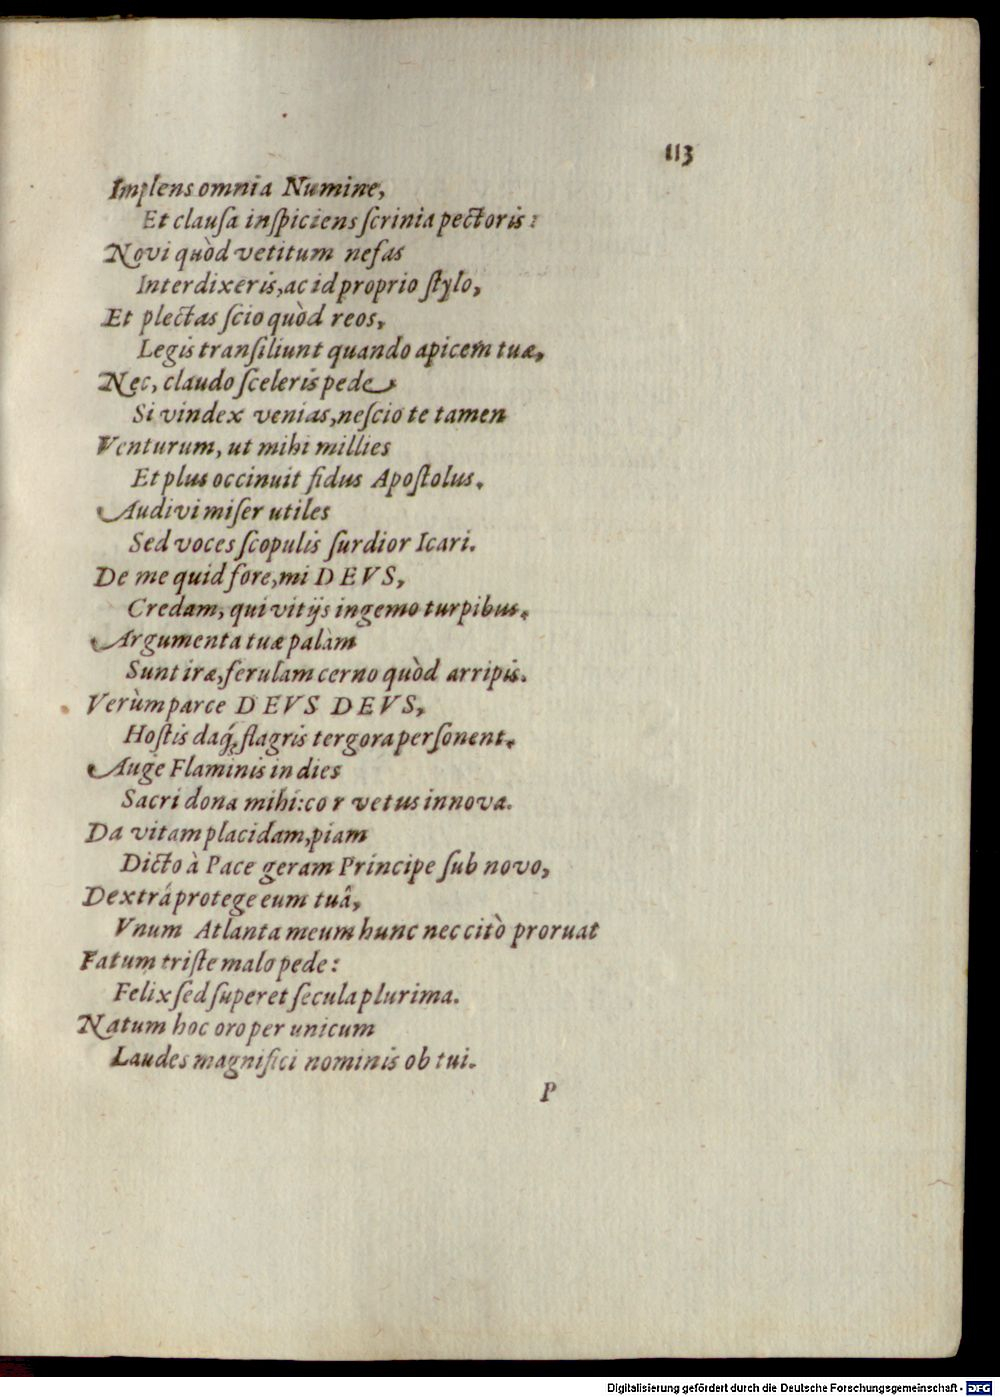 113
Implens omnia Numine,
Et clauſa inſpiciens ſcrinia pectoris:
Novi quòd vetitum nefas
Interdixeris, ac id proprio ſtylo,
Et plectas ſcio quòd reos,
Legis tranſiliunt quando apicem tuæ,
Nec, claudo ſceleris pede
Si vindex venias, neſcio te tamen
Venturum, ut mihi millies
Et plus occinuit fidus Apoſtolus.
Audivi miſer utiles
Sed voces ſcopulis ſurdior Icari.
De me quid fore, mi DEVS,
Credam, qui vitijs ingemo turpibus.
Argumenta tuæ palàm
Sunt iræ, ferulam cerno quòd arripis.
Verùm parce DEVS DEVS,
Hoſtis daq́; flagris tergora perſonent.
Auge Flaminis in dies
Sacri dona mihi: cor vetus innova.
Da vitam placidam, piam
Dicto à Pace geram Principe ſub novo,
Dextrâ protege eum tuâ,
Vnum Atlanta meum hunc nec citò proruat
Fatum triſte malo pede:
Felix ſed ſuperet ſecula plurima.
Natum hoc oro per unicum
Laudes magnifici nominis ob tui.
P
Digitalisierung gefördert durch die Deutsche Forschungsgemeinschaft - DFG